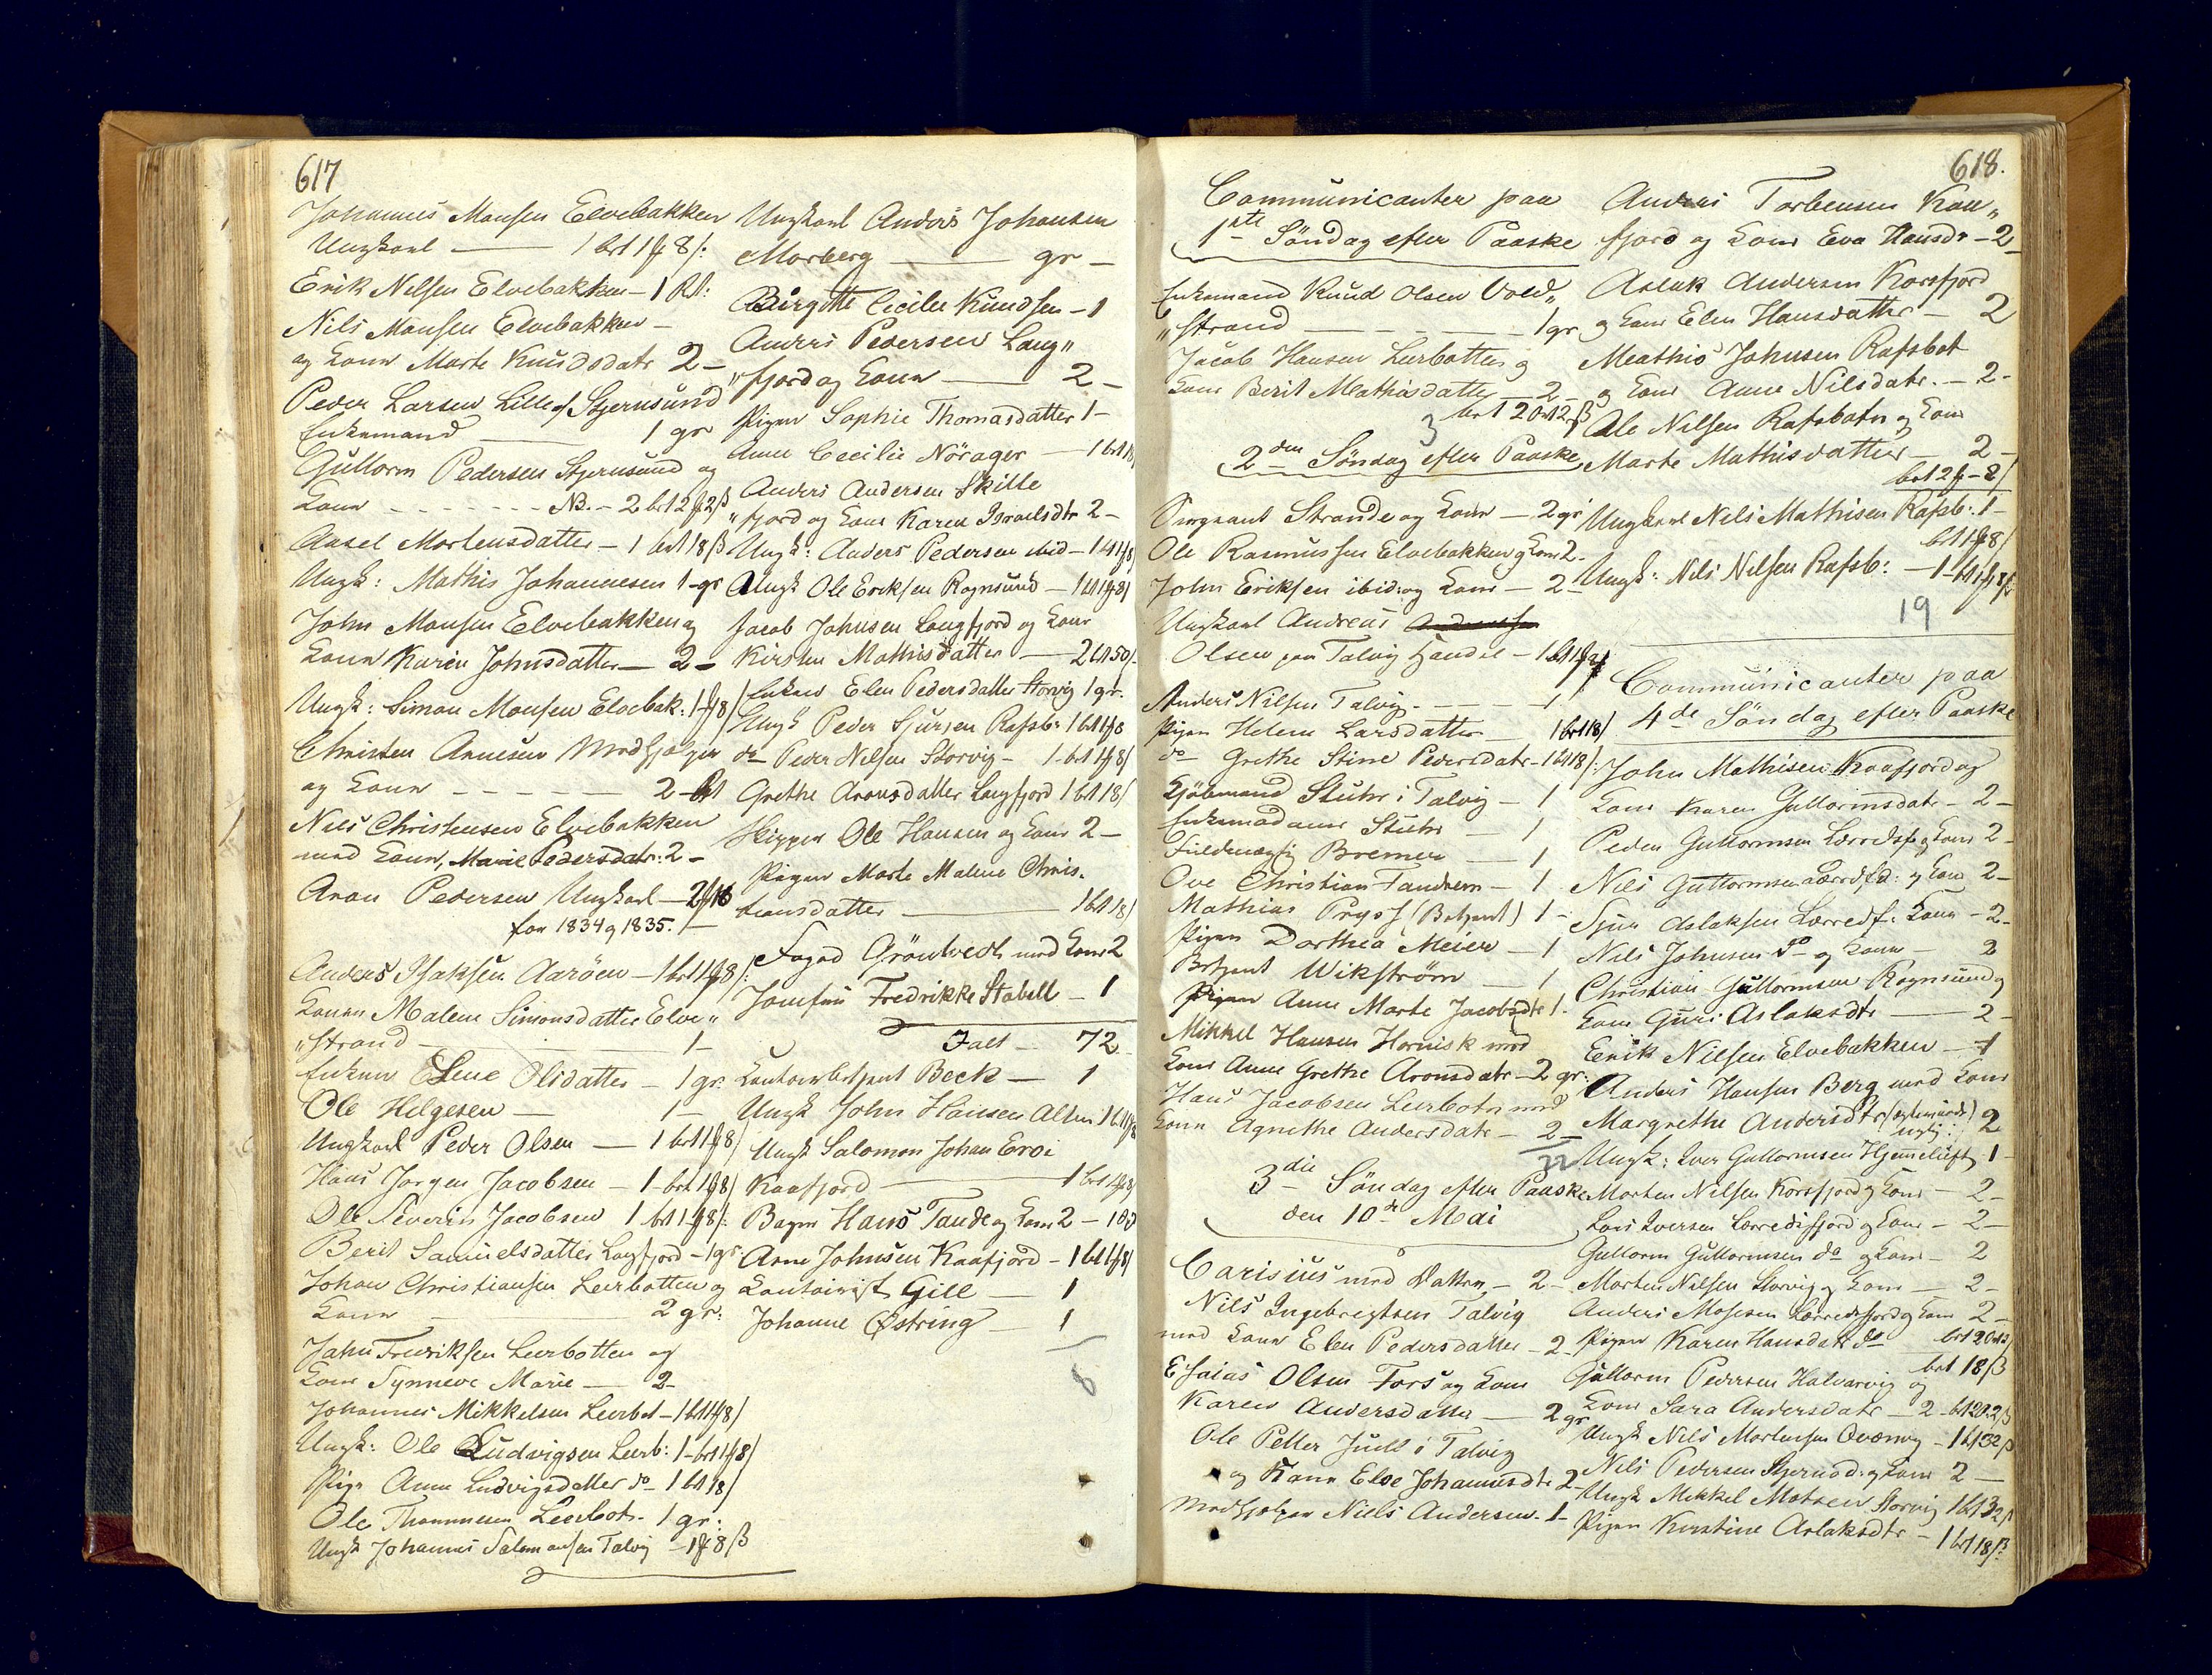 617
Johannes Monsen Elvebakken
Ungkarl — 1 bet 1 f 8/:
Erik Nilsen Elvebakken — 1 Rt:
Nils Monsen Elvebakken —
og Kone Marte Knudsdatr 2 —
Peder Larsen Lille af Stjernsund
Enkemand — 1 gr
Guttorm Pedersen Stjernsund og
Kone - - - - - - - NB. — 2 bet 2 f 2ß
Aasel Mortensdatter — 1 bet 18ß
Ungk: Mathis Johannesen 1 - gr
John Monsen Elvebakken og
Kone Karen Johnsdatter — 2 —
Ungk: Simon Monsen Elvebak: 1 f 8/
Christen Arnesen Medhjælper
og Kone - - - - - 2 - Bet
Nils Christensen Elvebakken
med Kone, Marie Pedersdatr: 2 —
Aron Pedersen Ungkarl — 2 f 16
for 1834 og 1835. 1 —
Anders Isaksen Aarøen — 1 bet 1 f 8/:
Konen Malene Simonsdatter Elve„
„strand — 1 —
Enken Elene Olsdatter — 1 gr:
Ole Helgesen — 1 —
Ungkarl Peder Olsen — 1 bet 1 f 8/
Hans Jørgen Jacobsen — 1 - bet 1 f 8/
Ole Severin Jacobsen 1 bet 1 f 8/:
Berit Samuelsdatter Langfjord — 1 gr:
Johan Christiansen Leerbotten og
Kone — 2 gr:
John Fredriksen Leerbotten og
Kone Synneve Marie — 2 —
Johannes Mikkelsen Leerbot — 1 bet 1 f 8/
Ungk: Ole Ludvigsen Leerb: 1 - bet 1 f 8/
Pige Anne Ludvigsdatter do 1 bet 18/
Ole Thommesen Leerbot. 1 gr:
Ungk Johannes Salomonsen Talvig — 1 f 8 ß
Ungkarl Anders Johansen
Morberg — gr —
Birgitte Cecilie Knudsen — 1
Anders Pedersen Lang„
„fjord og Kone — 2 —
Pigen Sophie Thomasdatter 1 —
Anne Cecilie Nørager — 1 bet 18
Anders Andersen Skille
„fjord og Kone Karen Israelsdtr 2 —
Ungk: Anders Pedersen ibid — 1 bt 1 f 8/
Ungk Ole Eriksen Rognsund — 1 bt 1 f 8/
Jacob Johnsen Langfjord og Kone
Kirsten Mathisdatter — 2 bt 50/.
Enken Elen Pedersdatter Storvig 1 gr.
Ungk Peder Sjursen Rafsb: 1 bet 1 f 8
do Peder Nilsen Storvig — 1 - bet 1 f 8/
Grethe Aronsdatter Langfjord 1 bet 18/
Skipper Ole Hansen og Kone 2 —
Pigen Marte Malene Chris.
tiansdatter — 1 bet 18/
Foged Grøntvedt med Kone 2
Jomfru Fredrikke Stabell — 1
Ialt — 72
Contoirbetjent Beck — 1
Ungk John Hansen Alten 1 bt 1 f 8
Ungk Salomon Johan Eroi
Kaafjord — 1 bet 1 f 8/
Bager Hans Tande og Kone 2 —
Arne Johnsen Kaafjord — 1 bet 1 f 8/
Contoirist Gill — 1
Johanne Østring — 1
8
618.
Communicanter paa
1ste Søndag efter Paaske
Enkemand Knud Olsen Vold„
„strand — 1 gr
Jacob Hansen Leerbotten og
Kone Berit Mathisdatter — 2 —
3 bet 2 Ort 12 ß
2den Søndag efter Paaske
Sergeant Strande og Kone — 2 gr
Ole Rasmussen Elvebakken og Kone 2 —
John Eriksen ibid: og Kone — 2 —
Ungkarl Andreas Andersen
Olsen paa Talvig Handel — 1 bet 1 f 8/
Anders Nilsen Talvig - - - - 1
Pigen Helene Larsdatter — 1 bet 18/
do Grethe Stine Pedersdatr — 1 bt 18/:
Kjøbmand Stuhr i Talvig — 1
Enkemadame Stuhr — 1
Fuldmægtig Bremer — 1
Ove Christian Tandberg — 1
Mathias Prysf (Betjent) 1 —
Pigen Dorthea Meier — 1
Betjent Wikstrøm — 1
Pigen Anne Marte Jacobsdtr 1.
Mikkel Hansen Hornisk med
Kone Anne Grethe Aronsdatr — 2 gr:
Hans Jacobsen Leerbotn med
Kone Agnethe Andersdatr — 2 —
22
3die Søndag efter Paaske
den 10de Mai
Carisius med Datter — 2 —
Nils Ingebregtsen Talvig
med Kone Elen Pedersdatter — 2 —
Esaias Olsen Fors og Kone
Karen Andersdatter — 2 gr
Ole Petter Juell i Talvig
og Kone Else Johannesdtr 2 —
Medhjælper Niels Andersen. 1 —
Anders Torbensen Kaa„
fjord og Kone Eva Hansdr — 2
Aslak Andersen Korsfjord
og Kone Elen Hansdatter — 2
Mathis Johnsen Rafsbot
og Kone Anne Nilsdatr. — 2 —
Ole Nilsen Rafsbotn og Kone
Marte Mathisdatter — 2 —
bet 2 f - 8/
Ungkarl Nils Mathisen Rafsb: 1 —
bet 1 f 8/
Ungk: Nils Nilsen Rafsb: — 1 - bt 1 f 8 ß
19
Communicanter paa
4de Søndag efter Paaske
John Mathisen Kaafjord og
Kone Karen Guttormsdatr — 2 —
Peder Guttormsen Lerredsf. og Kone 2 —
Nils Guttormsen Lerredsfd: og Kone 2 —
Sjur Aslaksen Lerredsf: Kone — 2 —
Nils Johnsen do og Kone — 2
Christian Guttormsen Rognsund og
Kone Guri Aslaksdtr — 2 —
Erik Nilsen Elvebakken — 1
Anders Hansen Berg med Kone
Margrethe Andersdtr 2
Ungk: Iver Guttormsen Hjemeluft 1 —
Morten Nilsen Korsfjord og Kone — 2 —
Lars Iversen Lerredsfjord og Kone — 2 —
Guttorm Guttormsen do og Kone — 2
Morten Nilsen Storvig og Kone — 2 —
Anders Mosesen Lerredsfjord og Kone 2 —
bet 2 Ort
Pigen Karen Hansdatr do
bet 18 ß
Guttorm Pedersen Halvarvig og
Kone Sara Andersdatr — 2 - bt 2 Ort 2 ß
Ungk Nils Mortensen — 1 bt 32 ß
Nils Pedersen Stjernsd: og Kone 2 —
Ungk Mikkel Matsen Storvig 1 bt 32 ß
Pigen Kirstine Aslaksdtr — 1 bet 18 ß: